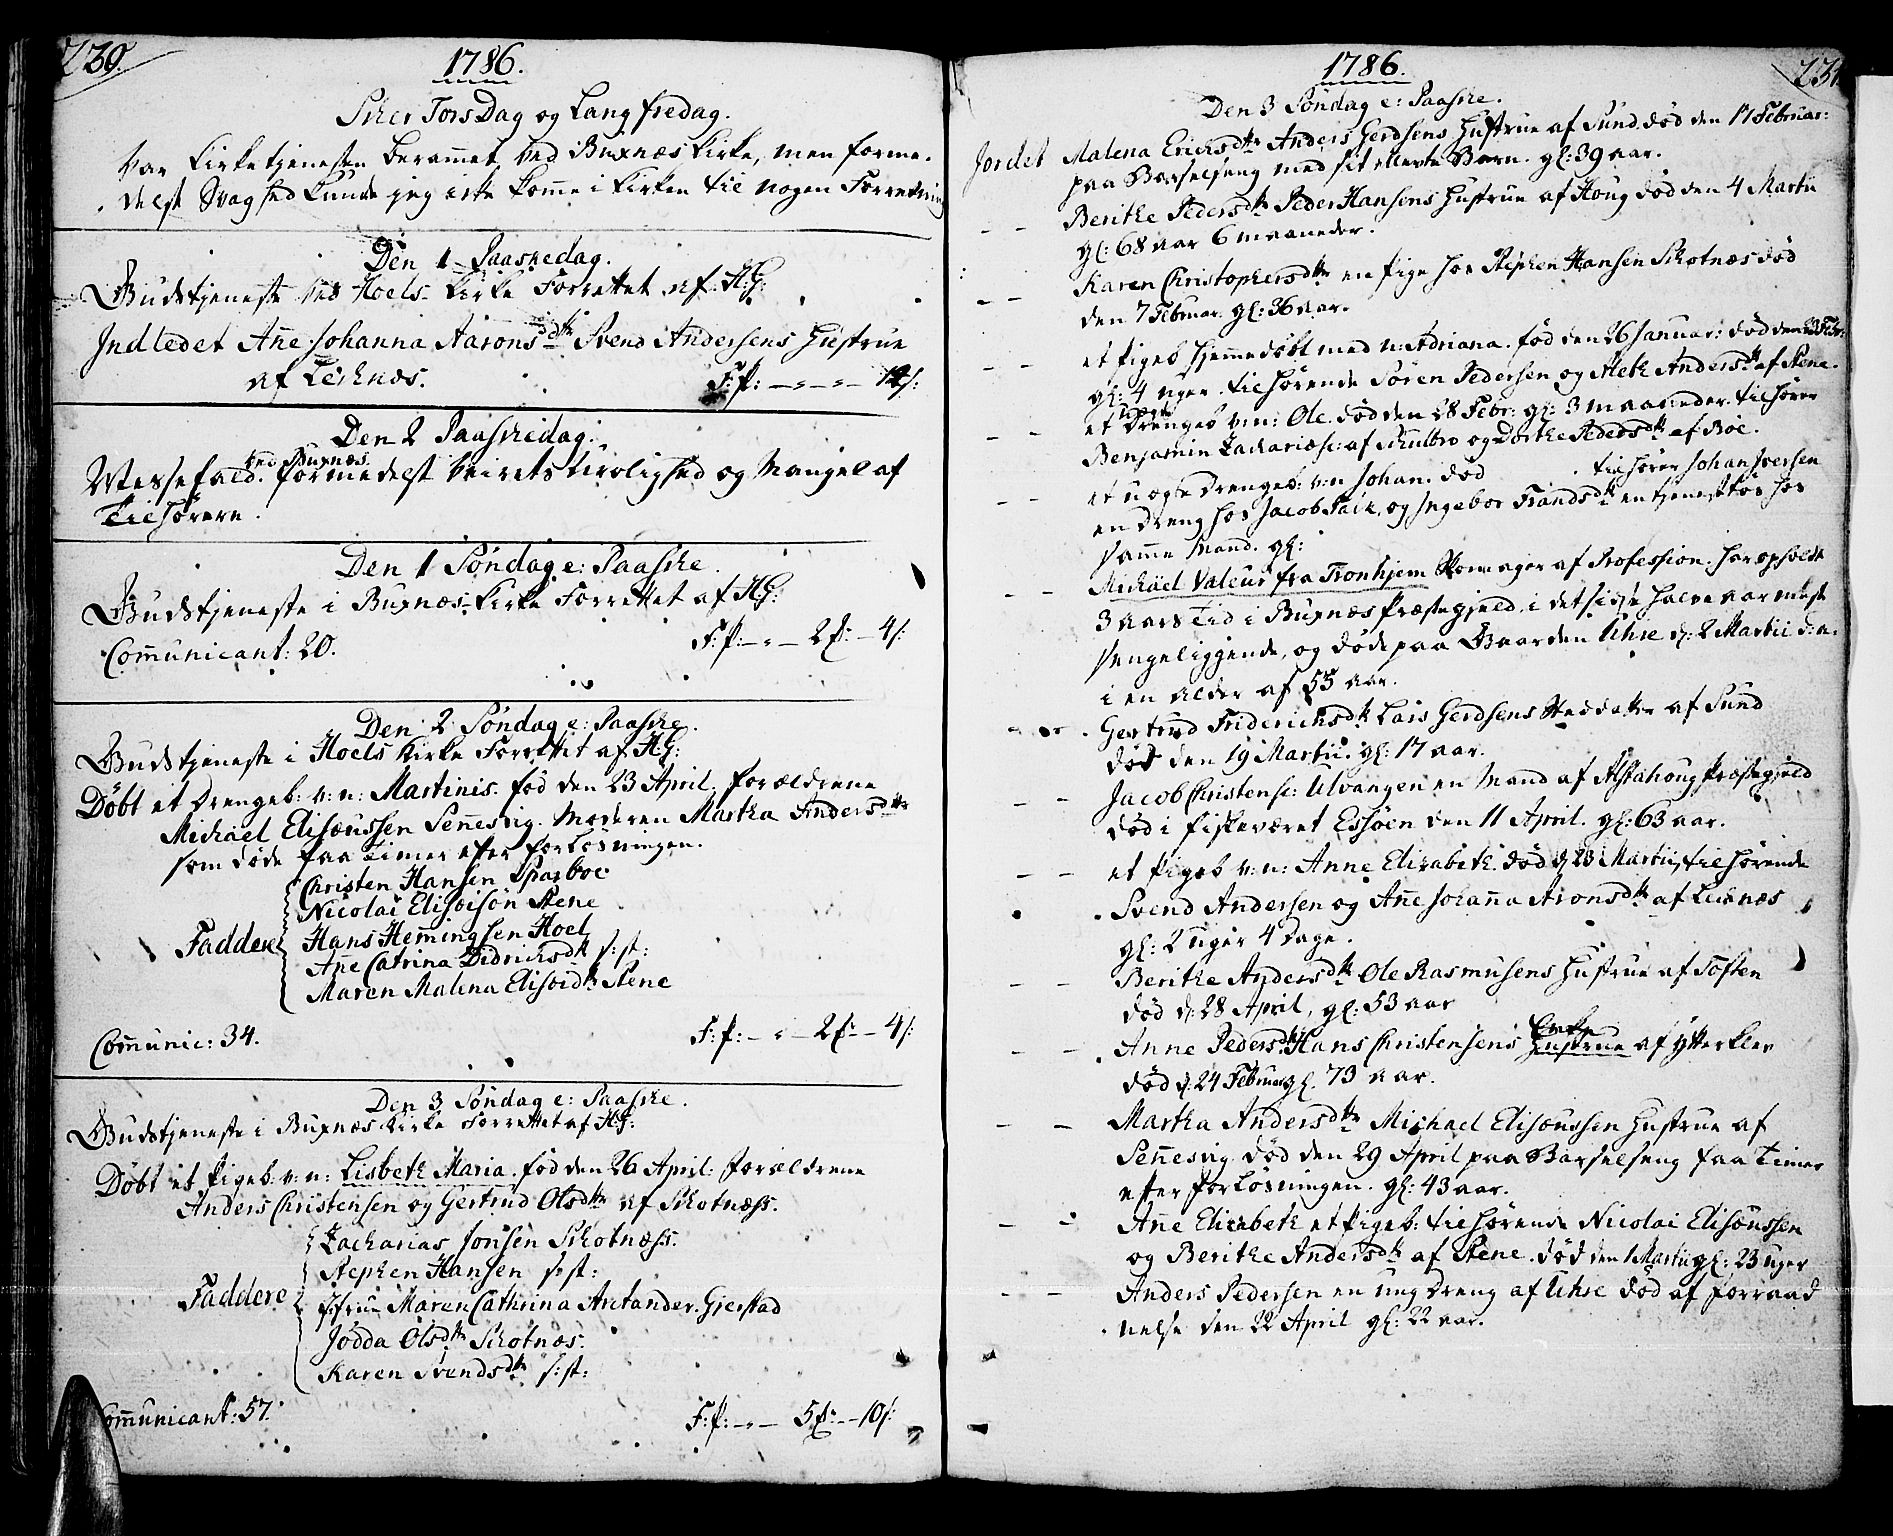 230.
1786.
Skier Tors Dag og Langfredag.
var Kirketjenesten berammet ved Buxnæs Kirke, men forme-
delst Svaghed kunde jeg ikke komme i Kirken til nogen Forretning
Den 1 Paaskedag.
Gudstjeneste ved Hoels Kirke Forrettet af H:G:
Indledet Añe Johanna Aarons dtr Svend Andersens Hustrue
af Leknæs. F:P: – " – " – 12 s:
Den 2 Paaskedag.
ved Buxnæs
Messefald. formedelst Veirets Urolighed og Mangel af
Tilhørere.
Den 1 Søndag e: Paaske.
Gudstjeneste i Buxnæs Kirke Forrettet af H:G:
Comunicant: 20. F:P: – " – 2 f: – 4 s:
Den 2 Søndag e: Paaske.
Gudstjeneste i Hoels Kirke Forrettet af H:G:
Døbt et Drengeb: v: n: Martinis. fød den 23 April, forældrene
Michael Elisæussen Señesvig. Moderen Martha Andersdtr
som døde faa Timer efter forløsningen.
Christen Hansen Sparboe
Nicolai Elisoisön Stene
Faddere Hans Hemingsen Hoel
Añe Catrina Didrichsdtr s: st:
Maren Malena Elisoidtr Stene
Comunic: 34. F:P: – " – 2 f: – 4 s:
Den 3 Søndag e: Paaske.
Gudstjeneste i Buxnæs Kirke Forrettet af H:G:
Døbt et Pigeb: v: n: Lisbeth Maria. fød den 26 April: forældrene
Anders Christensen og Gertrud Olsdtr af Skotnæss.
Zacharias Jonsen Skotnæss.
Stephen Hansen s: st:
Faddere Jfrue Maren Cathrina Arctander. Gierstad
Jødda Olsdtr Skotnæs.
Karen Svendsdtr s: st:
Comunicant: 57. F:P: – " – 5 f: – 10 s:
231
1786.
Den 3 Søndag e: Paaske.
Jordet Malena Ericksdtr Anders Gerdsens Hustrue af Sund død den 17 Februar:
paa Barselseng med sit ellevte Barn. gl: 39 aar.
– – Berithe Pedersdtr Peder Hansens Hustrue af Houg død den 4 Martii
gl: 68 aar 6 maaneder.
– – Karen Christophersdtr en Pige hos Stephen Hansen Skotnæs død
den 7 Februar. gl: 36 aar.
– – et Pigeb hjemmedøbt med n: Adriana. fød den 26 Januar: død den Febr:
gl: 4 uger. tilhørende Søren Pedersen og Aleth Andersdtr af Stene.
uægte
– – et Drengeb v: n: Ole. død den 28 Febr: gl: 3 maaneder. tilhører
Benjamin Zachariæs: af Skulbro og Dorthe Pedersdtr af Böe.
– – et uægte Drengeb: v: n Johan. død tilhører Johan Iversen
en Dreng hos Jacob Falk, og Ingebor Frandsdtr en tjenestetøs hos
samme Mand. gl:
– – Michael Valeur fra Tronhjem Skomager af Profession. har opholdt
3 aars Tid i Buxnæs Præstegjeld, i det sidste halve aar meest
sengeliggende, og døde paa Gaarden Uhre d: 2 Martii d: a:
i en alder af 53 aar.
– – Gertrud Friderichsdtr Lars Gerdsens Steddatter af Sund
død den 19 Martii. gl: 17 aar.
– – Jacob Christens: Ulvangen en Mand af Alstahoug Præstegjeld
død i fiskeværet Essöen den 11 April. gl: 63 aar.
– – et Pigeb v: n: Anne Elisabeth. død d 23 Martii, tilhørende
Svend Andersen og Añe Johaña Aronsdtr af Leknæs
gl: 2 uger 4 dage.
– – Berithe Andersdtr Ole Rasmusens Hustrue af Toften
død d: 28 April, gl: 53 aar
Enke
– – Anne Pedersdtr Hans Christensens Hustrue af Ytterklev
død d: 24 Februar gl. 73 aar.
– – Martha Andersdtr Michael Elisæussen Hustrue af
Señesvig død den 29 April paa Barselseng faa Timer
efter forløsningen. gl: 43 aar.
– – Añe Elisabeth et Pigeb: tilhørende Nicolai Elisæussen
og Berithe Andersdtr af Stene. død den 1 Martii gl: 23 uger
– – Anders Pedersen en ung Dreng af Uhre død af forraad
nelse den 22 April gl: 22 aar.